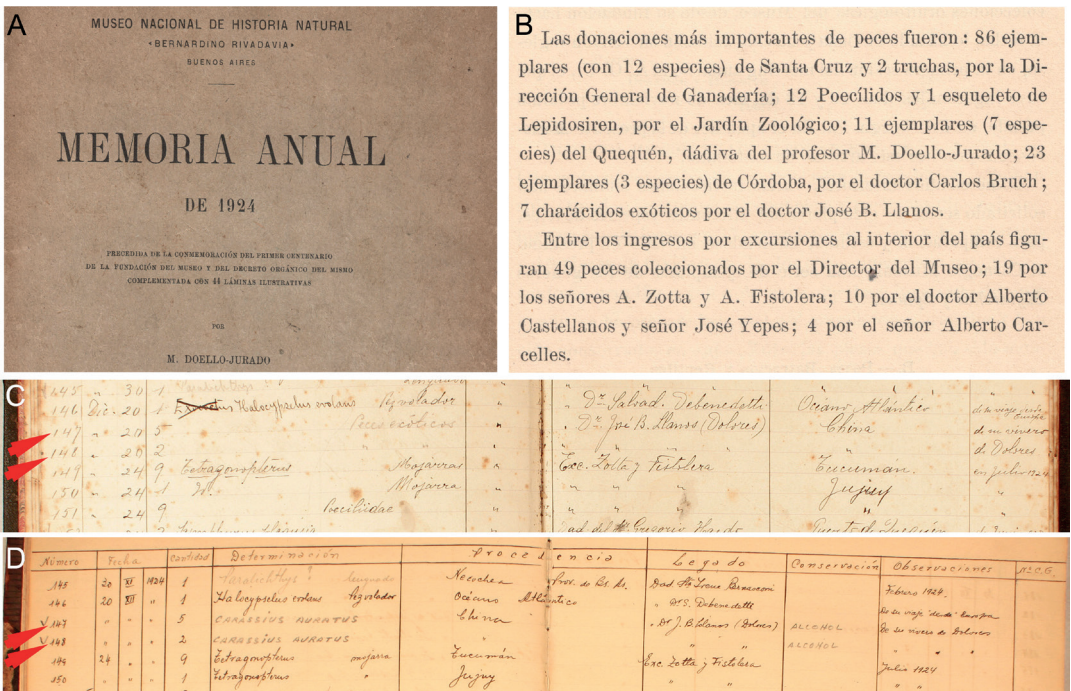 A
MUSEO NACIONAL DE HISTORIA NATURAL
«BERNARDINO RIVADAVIA»
BUENOS AIRES
MEMORIA ANUAL
DE 1924
PRECEDIDA DE LA CONMEMORACIÓN DEL PRIMER CENTENARIO
DE LA FUNDACIÓN DEL MUSEO Y DEL DECRETO ORGÁNICO DEL MISMO
COMPLEMENTADA CON 44 LÁMINAS ILUSTRATIVAS
POR
M. DOELLO-JURADO
B
Las donaciones más importantes de peces fueron : 86 ejem-
plares (con 12 especies) de Santa Cruz y 2 truchas, por la Di-
rección General de Ganadería; 12 Poecílidos y 1 esqueleto de
Lepidosiren, por el Jardín Zoológico; 11 ejemplares (7 espe-
cies) del Quequén, dádiva del profesor M. Doello-Jurado; 23
ejemplares (3 especies) de Córdoba, por el doctor Carlos Bruch;
7 charácidos exóticos por el doctor José B. Llanos.
Entre los ingresos por excursiones al interior del país figu-
ran 49 peces coleccionados por el Director del Museo; 19 por
los señores A. Zotta y A. Fistolera; 10 por el doctor Alberto
Castellanos y señor José Yepes; 4 por el señor Alberto Car-
celles.
C
145 " 30 1 Paralichthys
146 Dic. 20 1 Halocypselus evolans Pez volador " " Dr. Salvad. Debenedetti Océano Atlántico
147 " 20 5 Peces exóticos " " Dr. José B. Llanos (Dolores) China de su vivero
148 " 20 2 " " " " d. Dolores
149 " 24 9 Tetragonopterus Mojarras " Exc. Zotta y Fistolera Tucumán. en julio 1924
150 " 24 1 Id. Mojarra " " " " Jujuy
151 " 24 9 Poeciliidae " " " "
D
Número Fecha Cantidad Determinación Procedencia Legado Conservación Observaciones Nº C.G.
145 20 XI 1924 1 Paralichthys? lenguado Necochea Prov. de Bs. As. Febrero 1924.
146 20 XII " 1 Halocypselus evolans Pez volador Océano Atlántico " Dr. S. Debenedetti De su viaje desde Europa
147 " " " 5 CARASSIUS AURATUS China " Dr J. B. Llanos (Dolores) ALCOHOL De su vivero de Dolores
148 " " " 2 CARASSIUS AURATUS " " " ALCOHOL " "
149 24 " " 9 Tetragonopterus mojarra Tucumán Exc. Zotta y Fistolera Julio 1924
150 " " " 1 Tetragonopterus " Jujuy " " " "